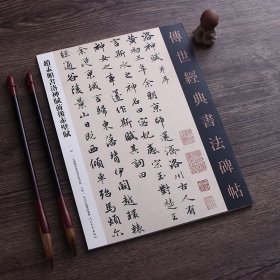 傳世經典書法碑帖
趙孟頫書洛神賦前後赤壁賦
洛神賦并序
黃初三年余朝京師還濟洛川古人有
言斯水之神名曰宓妃感宋玉對楚王
神女之事遂作斯賦其詞曰
余從京域言歸東藩背伊闕越轘轅
經通谷陵景山日既西傾車殆馬煩尔